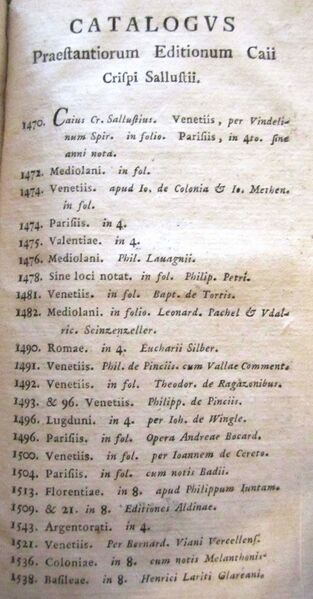 CATALOGVS
Praestantiorum Editionum Caii
Crispi Sallustii.
1470. Caius Cr. Sallustius. Venetiis, per Vindeli-
num Spir. in folio. Parisiis, in 4to. sine
anni nota.
1472. Mediolani. in fol.
1474. Venetiis. apud Io. de Colonia & Io. Methen.
in fol.
1474. Parisiis. in 4.
1475. Valentiae. in 4.
1476. Mediolani. Phil. Lauagnii.
1478. Sine loci notat. in fol. Philip. Petri.
1481. Venetiis. in fol. Bapt. de Tortis.
1482. Mediolani. in folio. Leonard. Pachel & Vdal-
ric. Scinzenzeller.
1490. Romae. in 4. Eucharii Silber.
1491. Venetiis. Phil. de Pinciis. cum Vallae Comment.
1492. Venetiis. in fol. Theodor. de Ragazonibus.
1493. & 96. Venetiis. Philipp. de Pinciis.
1496. Lugduni. in 4. per Ioh. de Wingle.
1496. Parisiis. in fol. Opera Andreae Bocard.
1500. Venetiis. in fol. per Ioannem de Cereto.
1504. Parisiis. in fol. cum notis Badii.
1513. Florentiae. in 8. apud Philippum Iuntam.
1509. & 21. in 8. Editiones Aldinae.
1543. Argentorati. in 4.
1521. Venetiis. Per Bernard. Viani Vercellens.
1536. Coloniae. in 8. cum notis Melanthonis
1538. Basileae. in 8. Henrici Lariti Glareani.